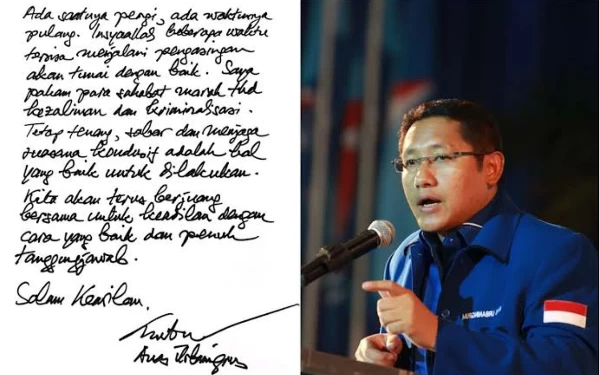 Ada saatnya pergi, ada waktunya
pulang. Insyaallah beberapa waktu
tersisa menjalani pengasingan
akan tunai dengan baik. Saya
paham para sahabat marah thd
kezaliman dan kriminalisasi.
Tetap tenang, sabar dan menjaga
suasana kondusif adalah hal
yang baik untuk dilakukan.
Kita akan terus berjuang
bersama untuk keadilan dengan
cara yang baik dan penuh
tanggungjawab.
Salam Keadilan.
Anas Urbaningrum